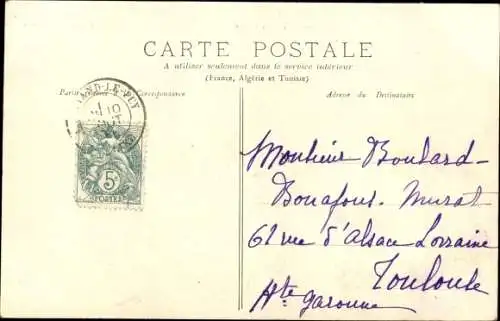 CARTE POSTALE
A utiliser seulement dans le service intérieur
(France, Algérie et Tunisie)
Correspondance
Adresse du Destinataire
LE-PUY
5c
POSTES
Monsieur Boulard-
Bonafous-Murat
62 rue d'Alsace Lorraine
Toulouse
Hte Garonne